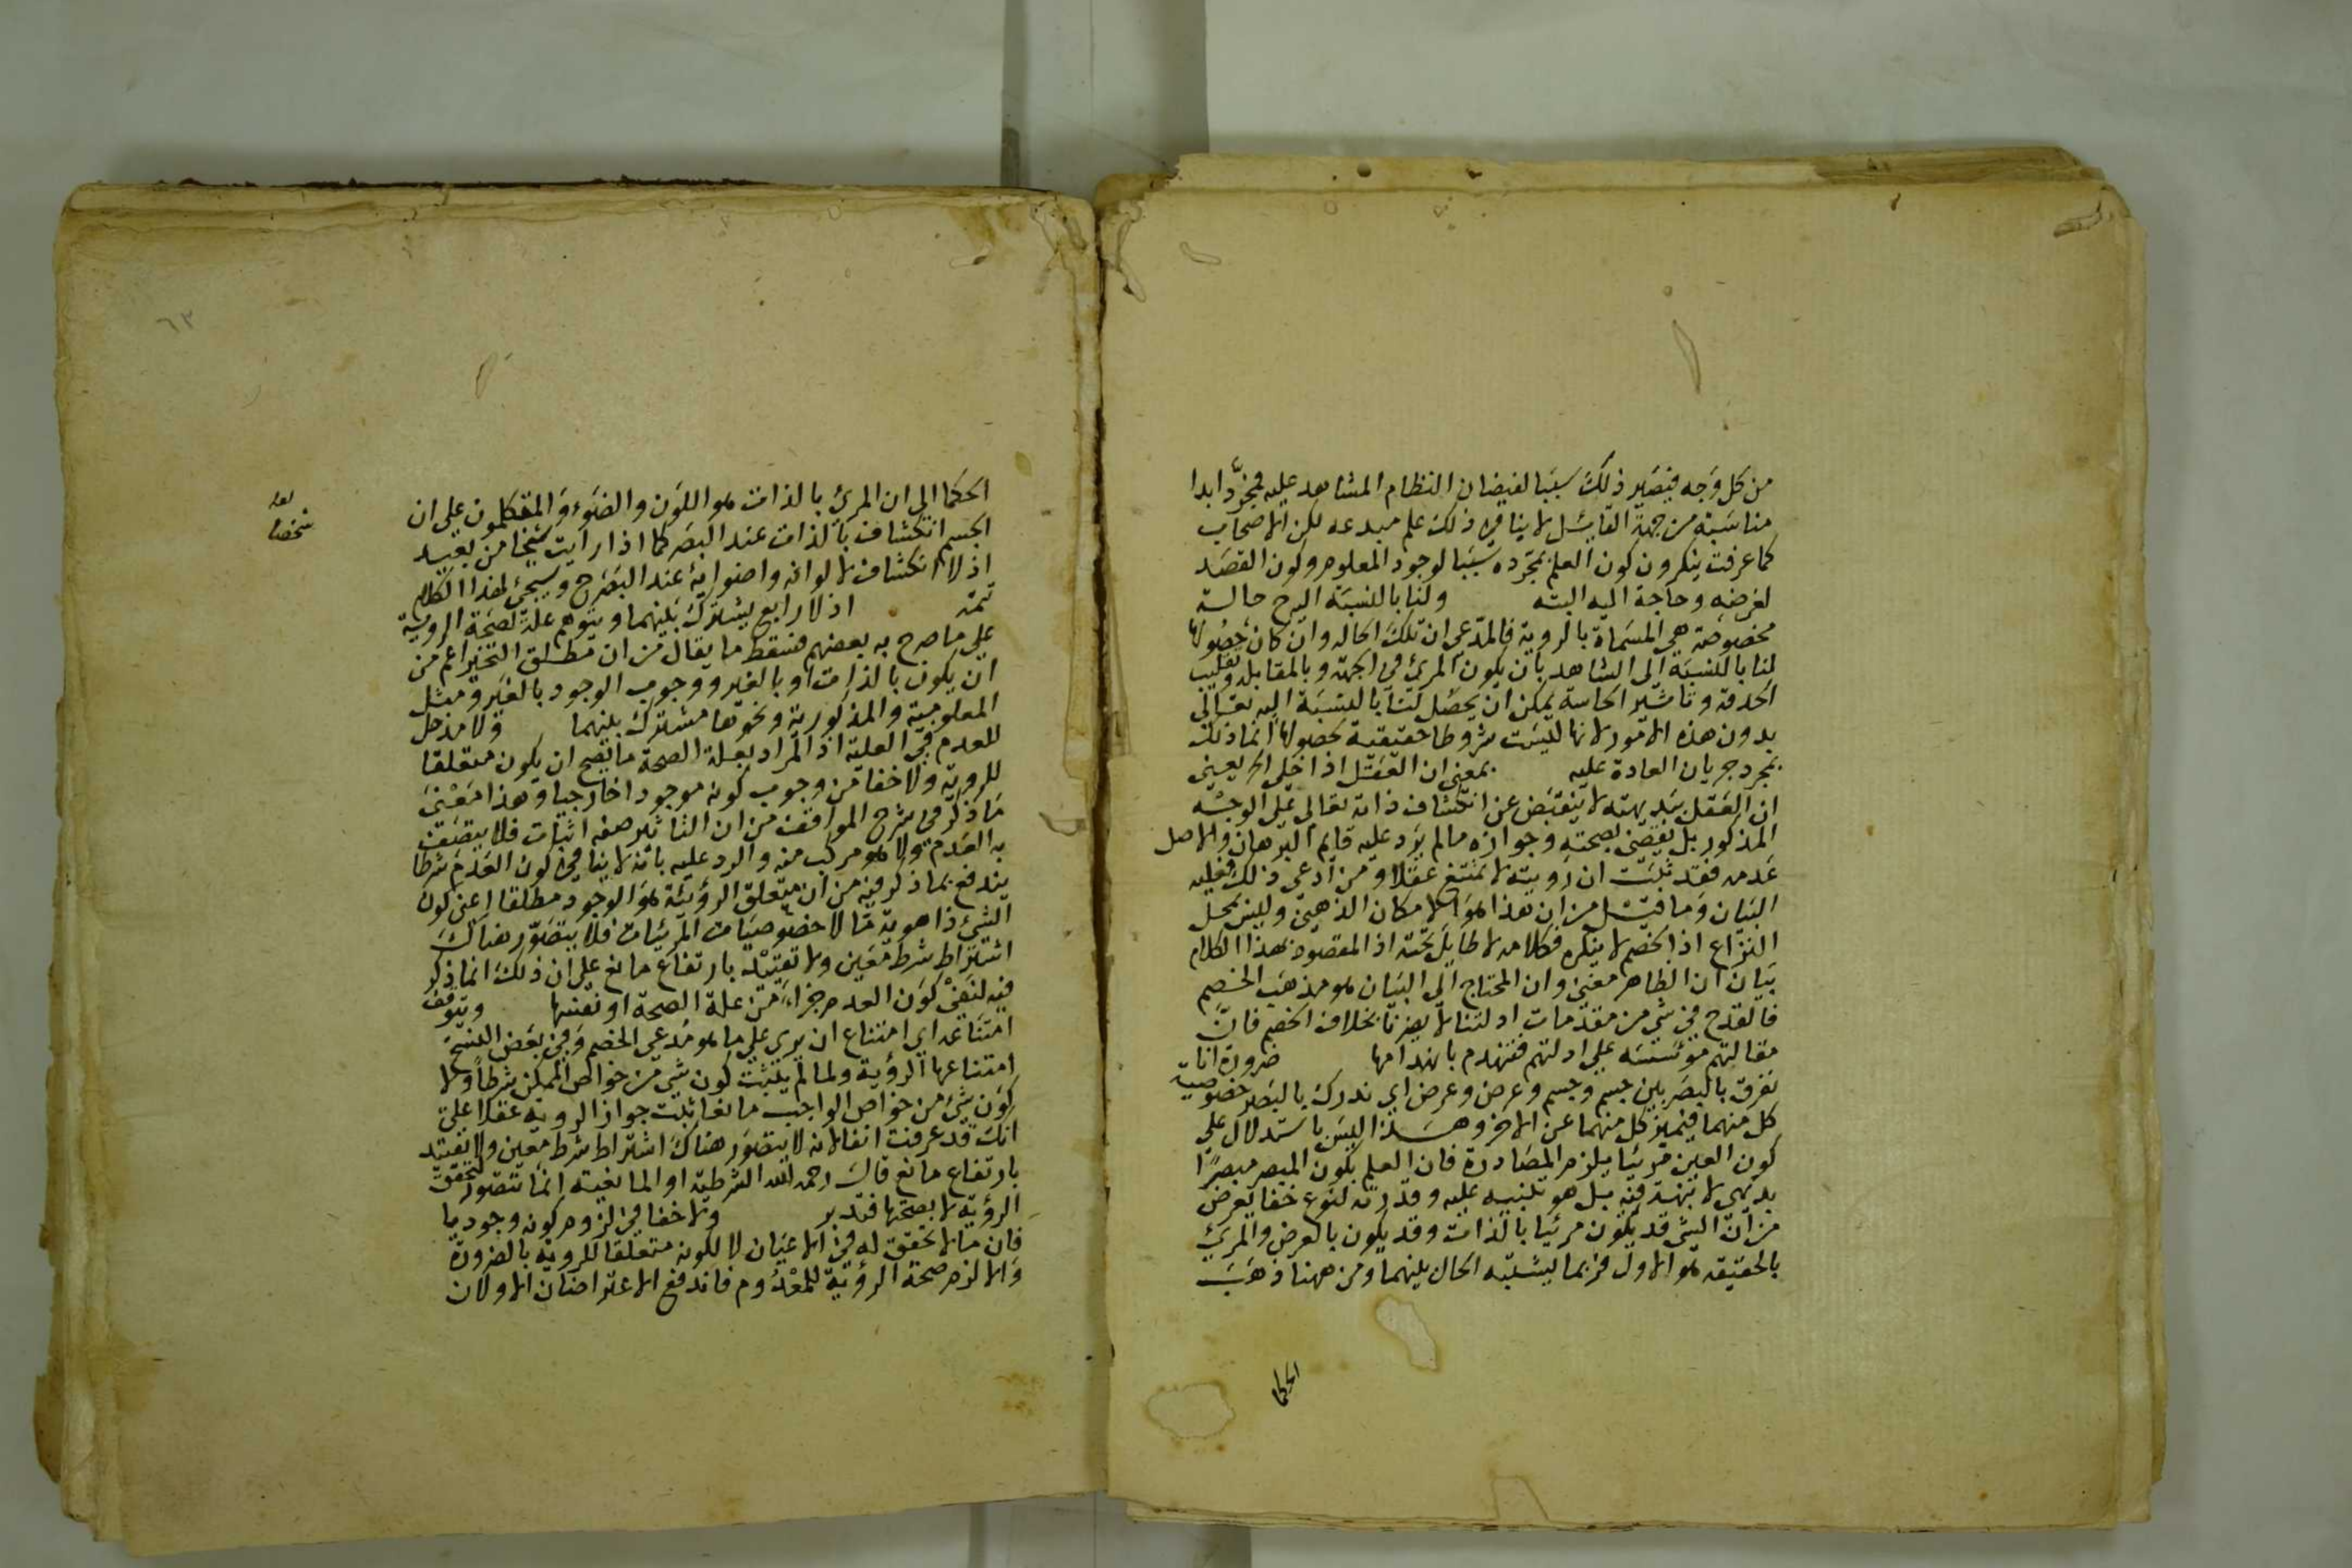 من كل وجه فيصير ذلك سببا لفيضان النظام المشاهد عليه فمجرد ابدا
مناسبة من جهة القائل لا ينافي ذلك علم مبدعه لكن الاصحاب
كما عرفت ينكرون كون العلم بمجرده سببا لوجود المعلوم وكون القصد
لغرضه وحاجة اليه البته ولنا بالنسبة اليه ح حالة
مخصوصة هي المسماة بالروية فالمدعي ان تلك الحالة وان كان حصولها
لنا بالنسبة الى الشاهد بان يكون المرئي في الجهة وبالمقابلة وتقليب
الحدقة وتاثير الحاسة يمكن ان يحصل لنا بالنسبة اليه تعالى
بدون هذه الامور لانها ليست شروطا حقيقية لحصولها انما ذلك
بمجرد جريان العادة عليه بمعنى ان العقل اذا خلى الخ يعني
ان العقل ببديهته لا ينقبض عن انكشاف ذاته تعالى على الوجه
المذكور بل يقضي بصحته وجوازه ما لم يرد عليه قايم البرهان والاصل
عدمه فقد ثبت ان رويته لا تمتنع عقلا ومن ادعي ذلك فعليه
البيان وما قيل من ان هذا هو الامكان الذهني وليس بمحل
النزاع اذ الخصم لا ينكره فكلامه لا طايل تحته اذ المقصود بهذا الكلام
بيان ان الظاهر معنى وان المحتاج الى البيان هو مذهب الخصم
فالقدح في شي من مقدمات ادلتنا لا يضرنا بخلاف الخصم فان
مقالتهم مؤسسه على ادلتهم فتنهدم بانهدامها ضرورة انا
نفرق بالبصر بين جسم وجسم وعرض وعرض اي ندرك بالبصر خصوصية
كل منهما فيميز كل منهما عن الاخر وهذا ليس باستدلال على
كون العين مرئيا يلزم المصادرة فان العلم بكون المبصر مبصرا
بديهي لا شبهة فيه بل هو تنبيه عليه وقدرته لنوع خفا يعرض
من ان الشي قد يكون مرئيا بالذات وقد يكون بالعرض والمرئي
بالحقيقة هو الاول فربما يشتبه الحال بينهما ومن ههنا ذهب
الحكما
٦٣
الحكما الى ان المرئي بالذات هو اللون والضوء والمتكلمون على ان
الجسم انكشاف بالذات عند البصر كما اذا رايت شبحا من بعيد
لعله
شخصا
اذ لا انكشاف لالوانه واضوايه عند البصر ح وسيجئ لهذا الكلام
تتمة اذ لا رابع يشترك بينهما ويتوهم علة لصحة الروية
على ما صرح به بعضهم فسقط ما يقال من ان مطلق التحيز اعم من
ان يكون بالذات او بالغير ووجوب الوجود بالغير ومثل
المعلومية والمذكورية ونحوها مشترك بينهما ولا مدخل
للعدم في العلية اذ المراد بعلة الصحة ما يصح ان يكون متعلقا
للروية ولا خفا من وجوب كونه موجودا خارجيا وهذا معنى
ما ذكر في شرح المواقف من ان التاثير صفه اثبات فلا يتصف
به العدم ولا هو مركب منه والرد عليه بانه لا ينافي كون العدم شرطا
يندفع بما ذكر فيه من ان متعلق الرؤية هو الوجود مطلقا اعني كون
الشئ ذا هوية ما لا خصوصيات المرئيات فلا يتصور هناك
اشتراط شرط معين ولا تقييده بارتفاع مانع على ان ذلك انما ذكر
فيه لنفي كون العدم جزاء من علة الصحة او نفسها وتوقف
امتناعه اي امتناع ان يرى على ما هو مدعى الخصم وفي بعض النسخ
امتناعها الرؤية ولما لم يثبت كون شي من خواص الممكن شرطا ولا
كون شئ من خواص الواجب مانعا ثبت جواز الروية عقلا على
انك قد عرفت انفا انه لا يتصور هناك اشتراط شرط معين ولا تقييد
بارتفاع مانع قال رحمه الله الشرطية او المانعية انما تتصور لتحقق
الرؤية لا بصحتها فتدبر ولا خفا في لزوم كونه وجوديا
فان ما لا تحقق له في الاعيان لا لكونه متعلقا للروية بالضرورة
والا لزم صحة الرؤية للمعدوم فاندفع الاعتراضان الاولان